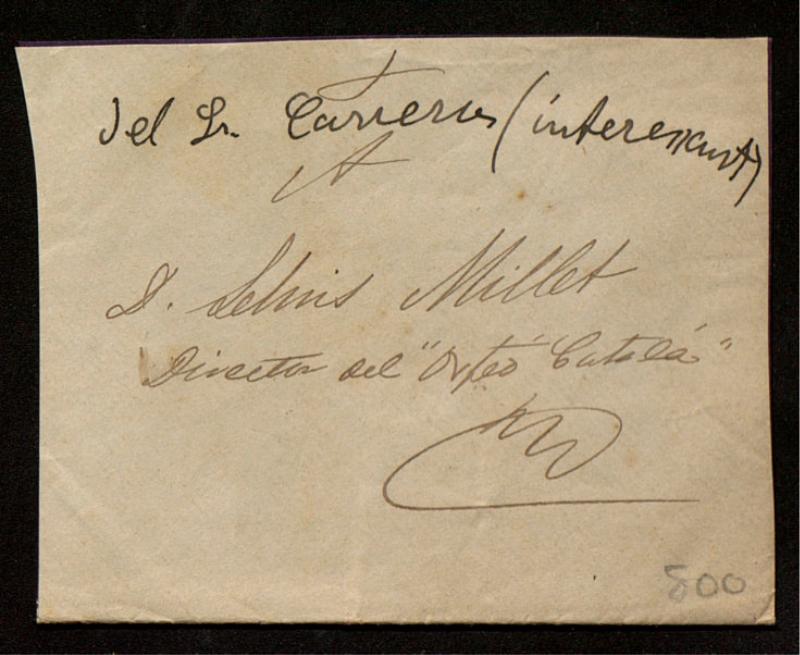 del Sr. Carreras (interessant)
A
D. Lluis Millet
Director del "Orfeó Català"
500